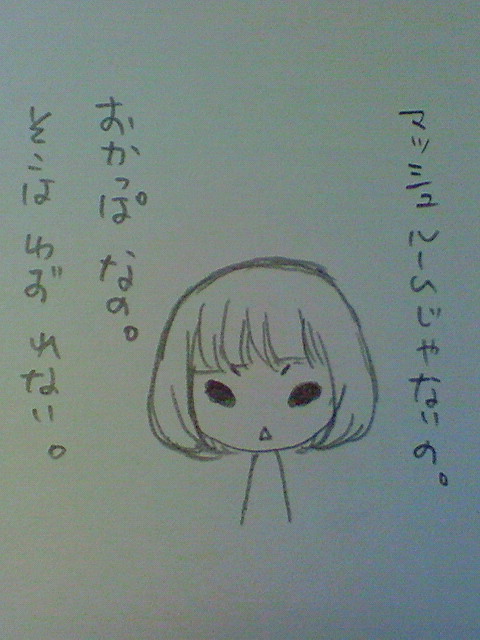 マッシュルームじゃないの。
おかっぱなの。
そこはゆずれない。